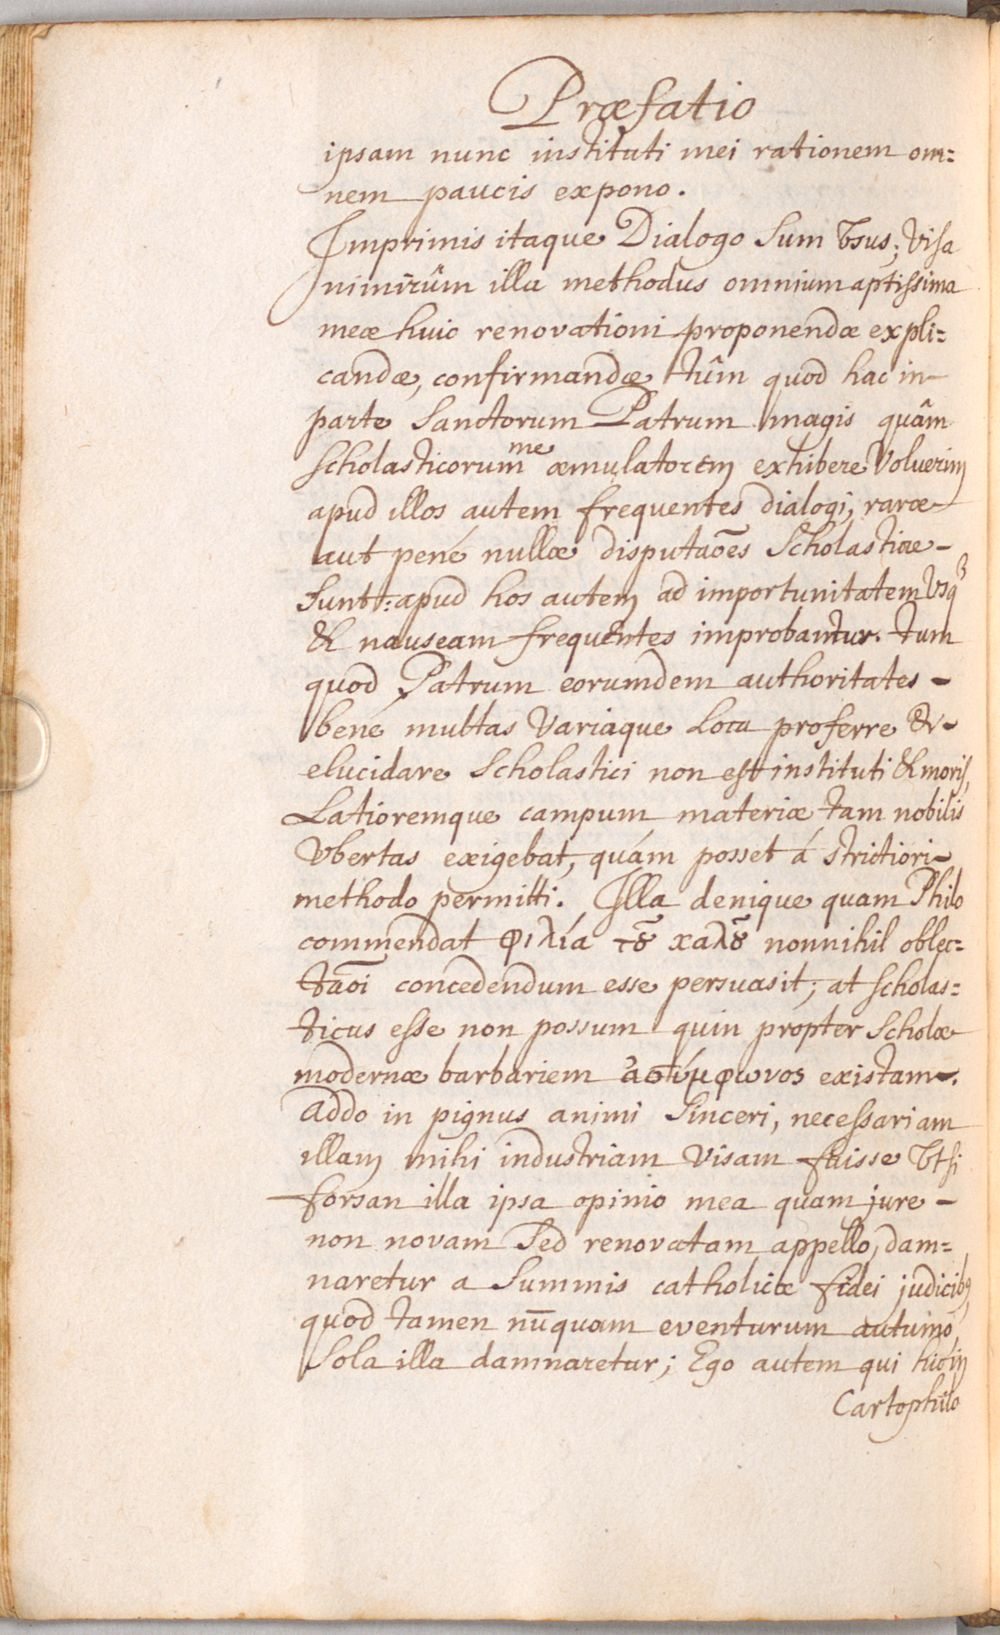 Præfatio
ipsam nunc instituti mei rationem om=
nem paucis expono.
Imprimis itaque Dialogo Sum Vsus; Visa
nimirûm illa methodus omnium aptissima
meæ huic renovationi proponendæ expli=
candæ, confirmandæ tûm quod hac in-
parte Sanctorum Patrum magis quâm
scholasticorum me æmulatorem exhibere Voluerim
apud illos autem frequentes dialogi, raræ
aut pené nullæ disputaōes Scholasticæ-
Sunt: apud hos autem ad importunitatem Vsq3
& nauseam frequentes improbantur. tum
quod Patrum eorumdem authoritates -
bené multas Variaque Loca proferre &-
elucidare Scholastici non est instituti & moris,
Latioremque campum materiæ tam nobilis
Vbertas exigebat, quám posset á strictiori-
methodo permitti. Illa denique quam Philo
commendat φιλία τȣ͂ χαλȣ͂ nonnihil oblec=
taōi concedendum esse persuasit; at scholas=
ticus esse non possum quin propter Scholæ
modernæ barbariem ἀσύμφωνος existam-.
addo in pignus animi Sinceri, necessariam
illam mihi industriam Visam fuisse Vt si
forsan illa ipsa opinio mea quam jure -
non novam Sed renovatam appello, dam=
naretur a Summis catholicæ fidei judicib9,
quod tamen nūquam eventurum autumo,
Sola illa damnaretur; Ego autem qui hic in
Cartophilo